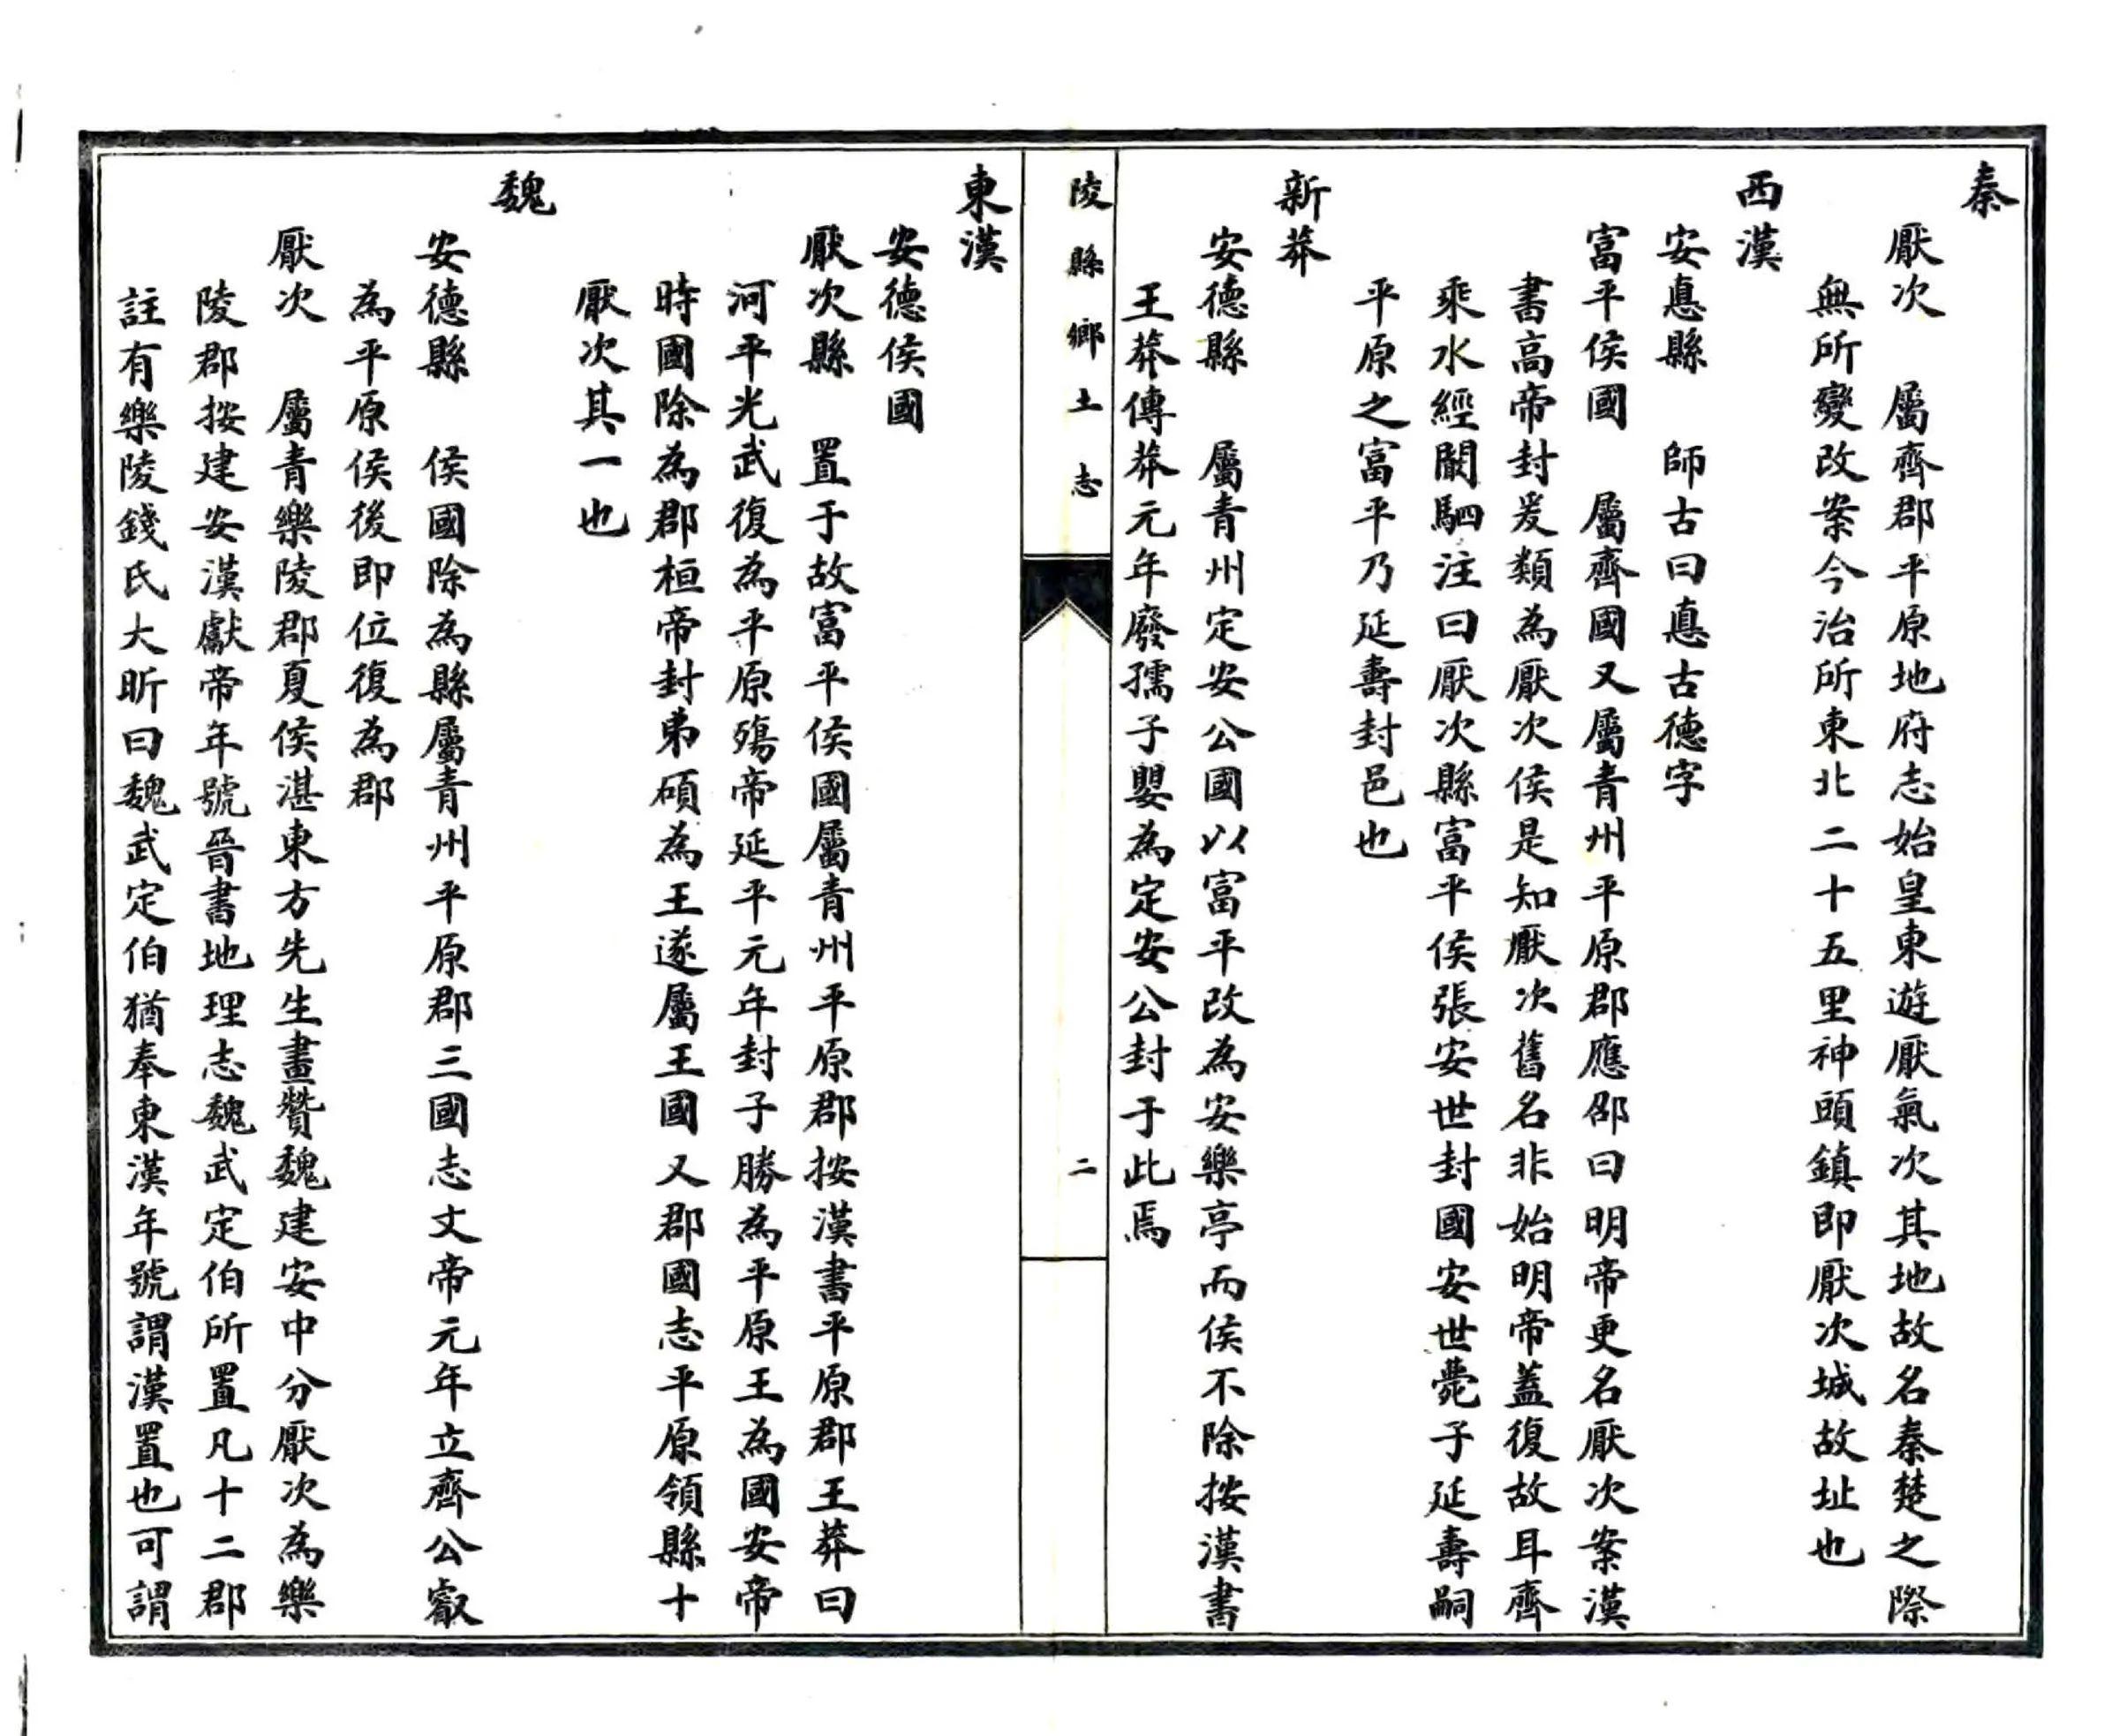 秦
厭次　屬齊郡平原地府志始皇東遊厭氣次其地故名秦楚之際
無所變改案今治所東北二十五里神頭鎮即厭次城故址也
西漢
安悳縣　師古曰悳古德字
富平侯國　屬齊國又屬青州平原郡應邵曰明帝更名厭次案漢
書高帝封爰類為厭次侯是知厭次舊名非始明帝蓋復故耳齊
乘水經闞駟注曰厭次縣富平侯張安世封國安世薨子延壽嗣
平原之富平乃延壽封邑也
新莽
安德縣　屬青州定安公國以富平改為安樂亭而侯不除按漢書
王莽傳莽元年廢孺子嬰為定安公封于此焉
陵縣鄉土志　二
東漢
安德侯國
厭次縣　置于故富平侯國屬青州平原郡按漢書平原郡王莽曰
河平光武復為平原殤帝延平元年封子勝為平原王為國安帝
時國除為郡桓帝封弟碩為王遂屬王國又郡國志平原領縣十
厭次其一也
魏
安德縣　侯國除為縣屬青州平原郡三國志文帝元年立齊公叡
為平原侯後即位復為郡
厭次　屬青樂陵郡夏侯湛東方先生畫贊魏建安中分厭次為樂
陵郡按建安漢獻帝年號晉書地理志魏武定伯所置凡十二郡
註有樂陵錢氏大昕曰魏武定伯猶奉東漢年號謂漢置也可謂